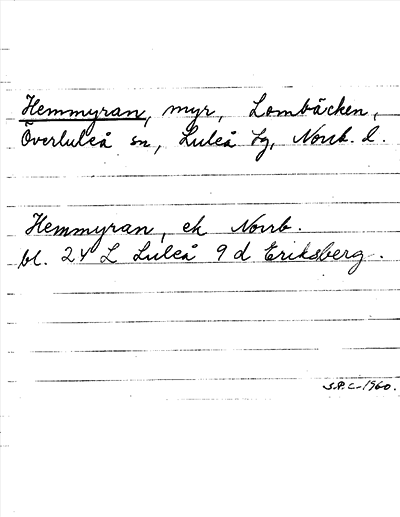 Hemmyran, myr, Lombäcken,
Överluleå sn, Luleå tg, Norrb. l.
Hemmyran, ek Norrb.
bl. 24 L Luleå 9 d Eriksberg.
S.P.C-1960.